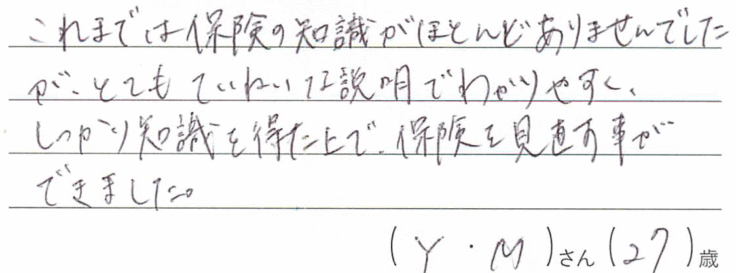 これまでは保険の知識がほとんどありませんでした
が、とてもていねいな説明でわかりやすく、
しっかり知識を得た上で、保険を見直す事が
できました。
(Y・M)さん(27)歳